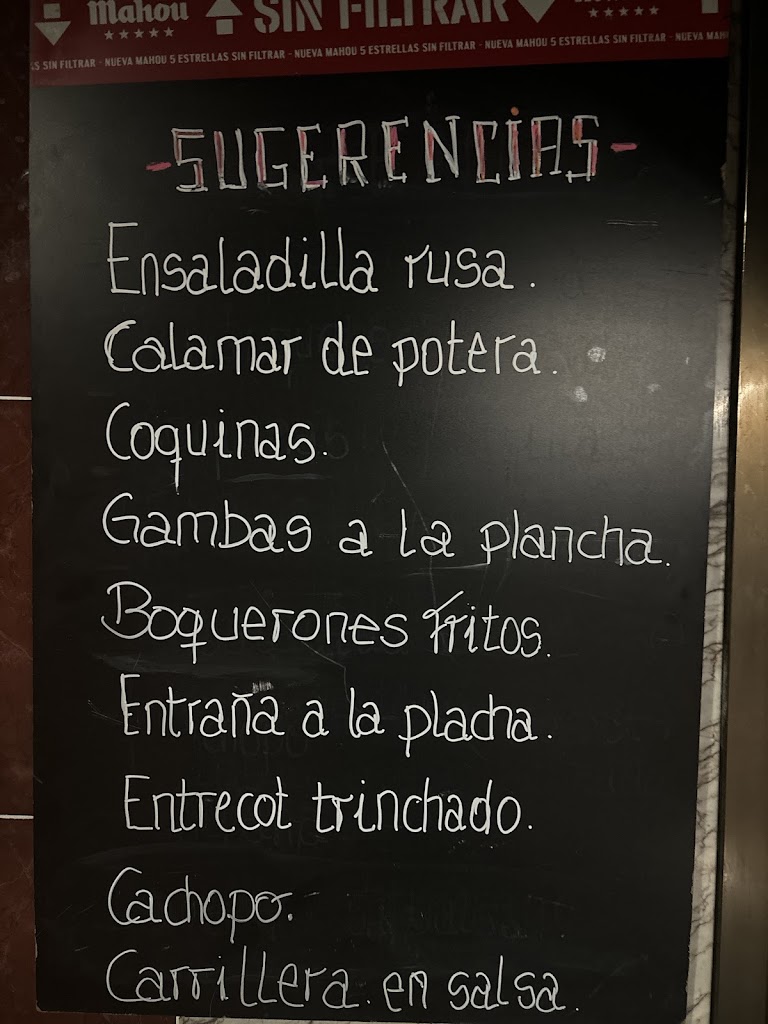 Mahou SIN FILTRAR
AS SIN FILTRAR - NUEVA MAHOU 5 ESTRELLAS SIN FILTRAR - NUEVA MAHOU 5 ESTRELLAS SIN FILTRAR - NUEVA MAH
-SUGERENCIAS-
Ensaladilla rusa.
Calamar de potera.
Coquinas.
Gambas a la plancha.
Boquerones fritos.
Entraña a la placha.
Entrecot trinchado.
Cachopo.
Carrillera. en salsa.